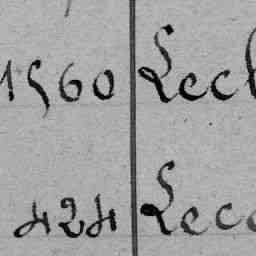 1560 Lecl
424 Lece